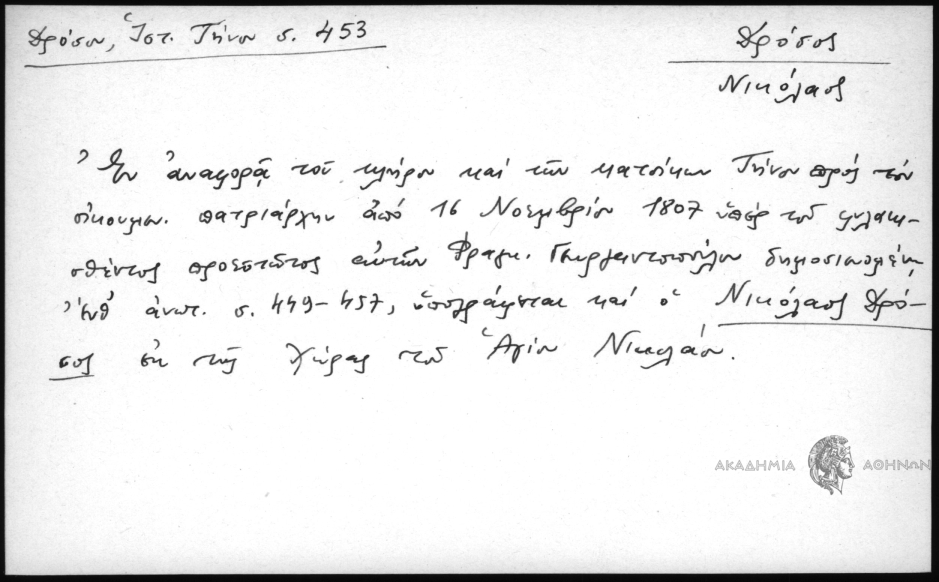 Δρόσου, Ἱστ. Τήνου σ. 453
Δρόσος
Νικόλαος
Ἐν ἀναφορᾷ τοῦ κλήρου καὶ τῶν κατοίκων Τήνου πρὸς τὸν
οἰκουμεν. πατριάρχην ἀπό 16 Νοεμβρίου 1807 ὑπέρ τοῦ φυλακι-
σθέντος προεστῶτος αὐτῶν Φραγκ. Γεωργαντοπούλου δημοσιευομένῃ
ἔνθ' ἀνωτ. σ. 449-457, ὑπογράφεται καί ὁ Νικόλαος Δρό-
σος ἐκ τῆς Χώρας τοῦ Ἁγίου Νικολάου.
ΑΚΑΔΗΜΙΑ ΑΘΗΝΩΝ